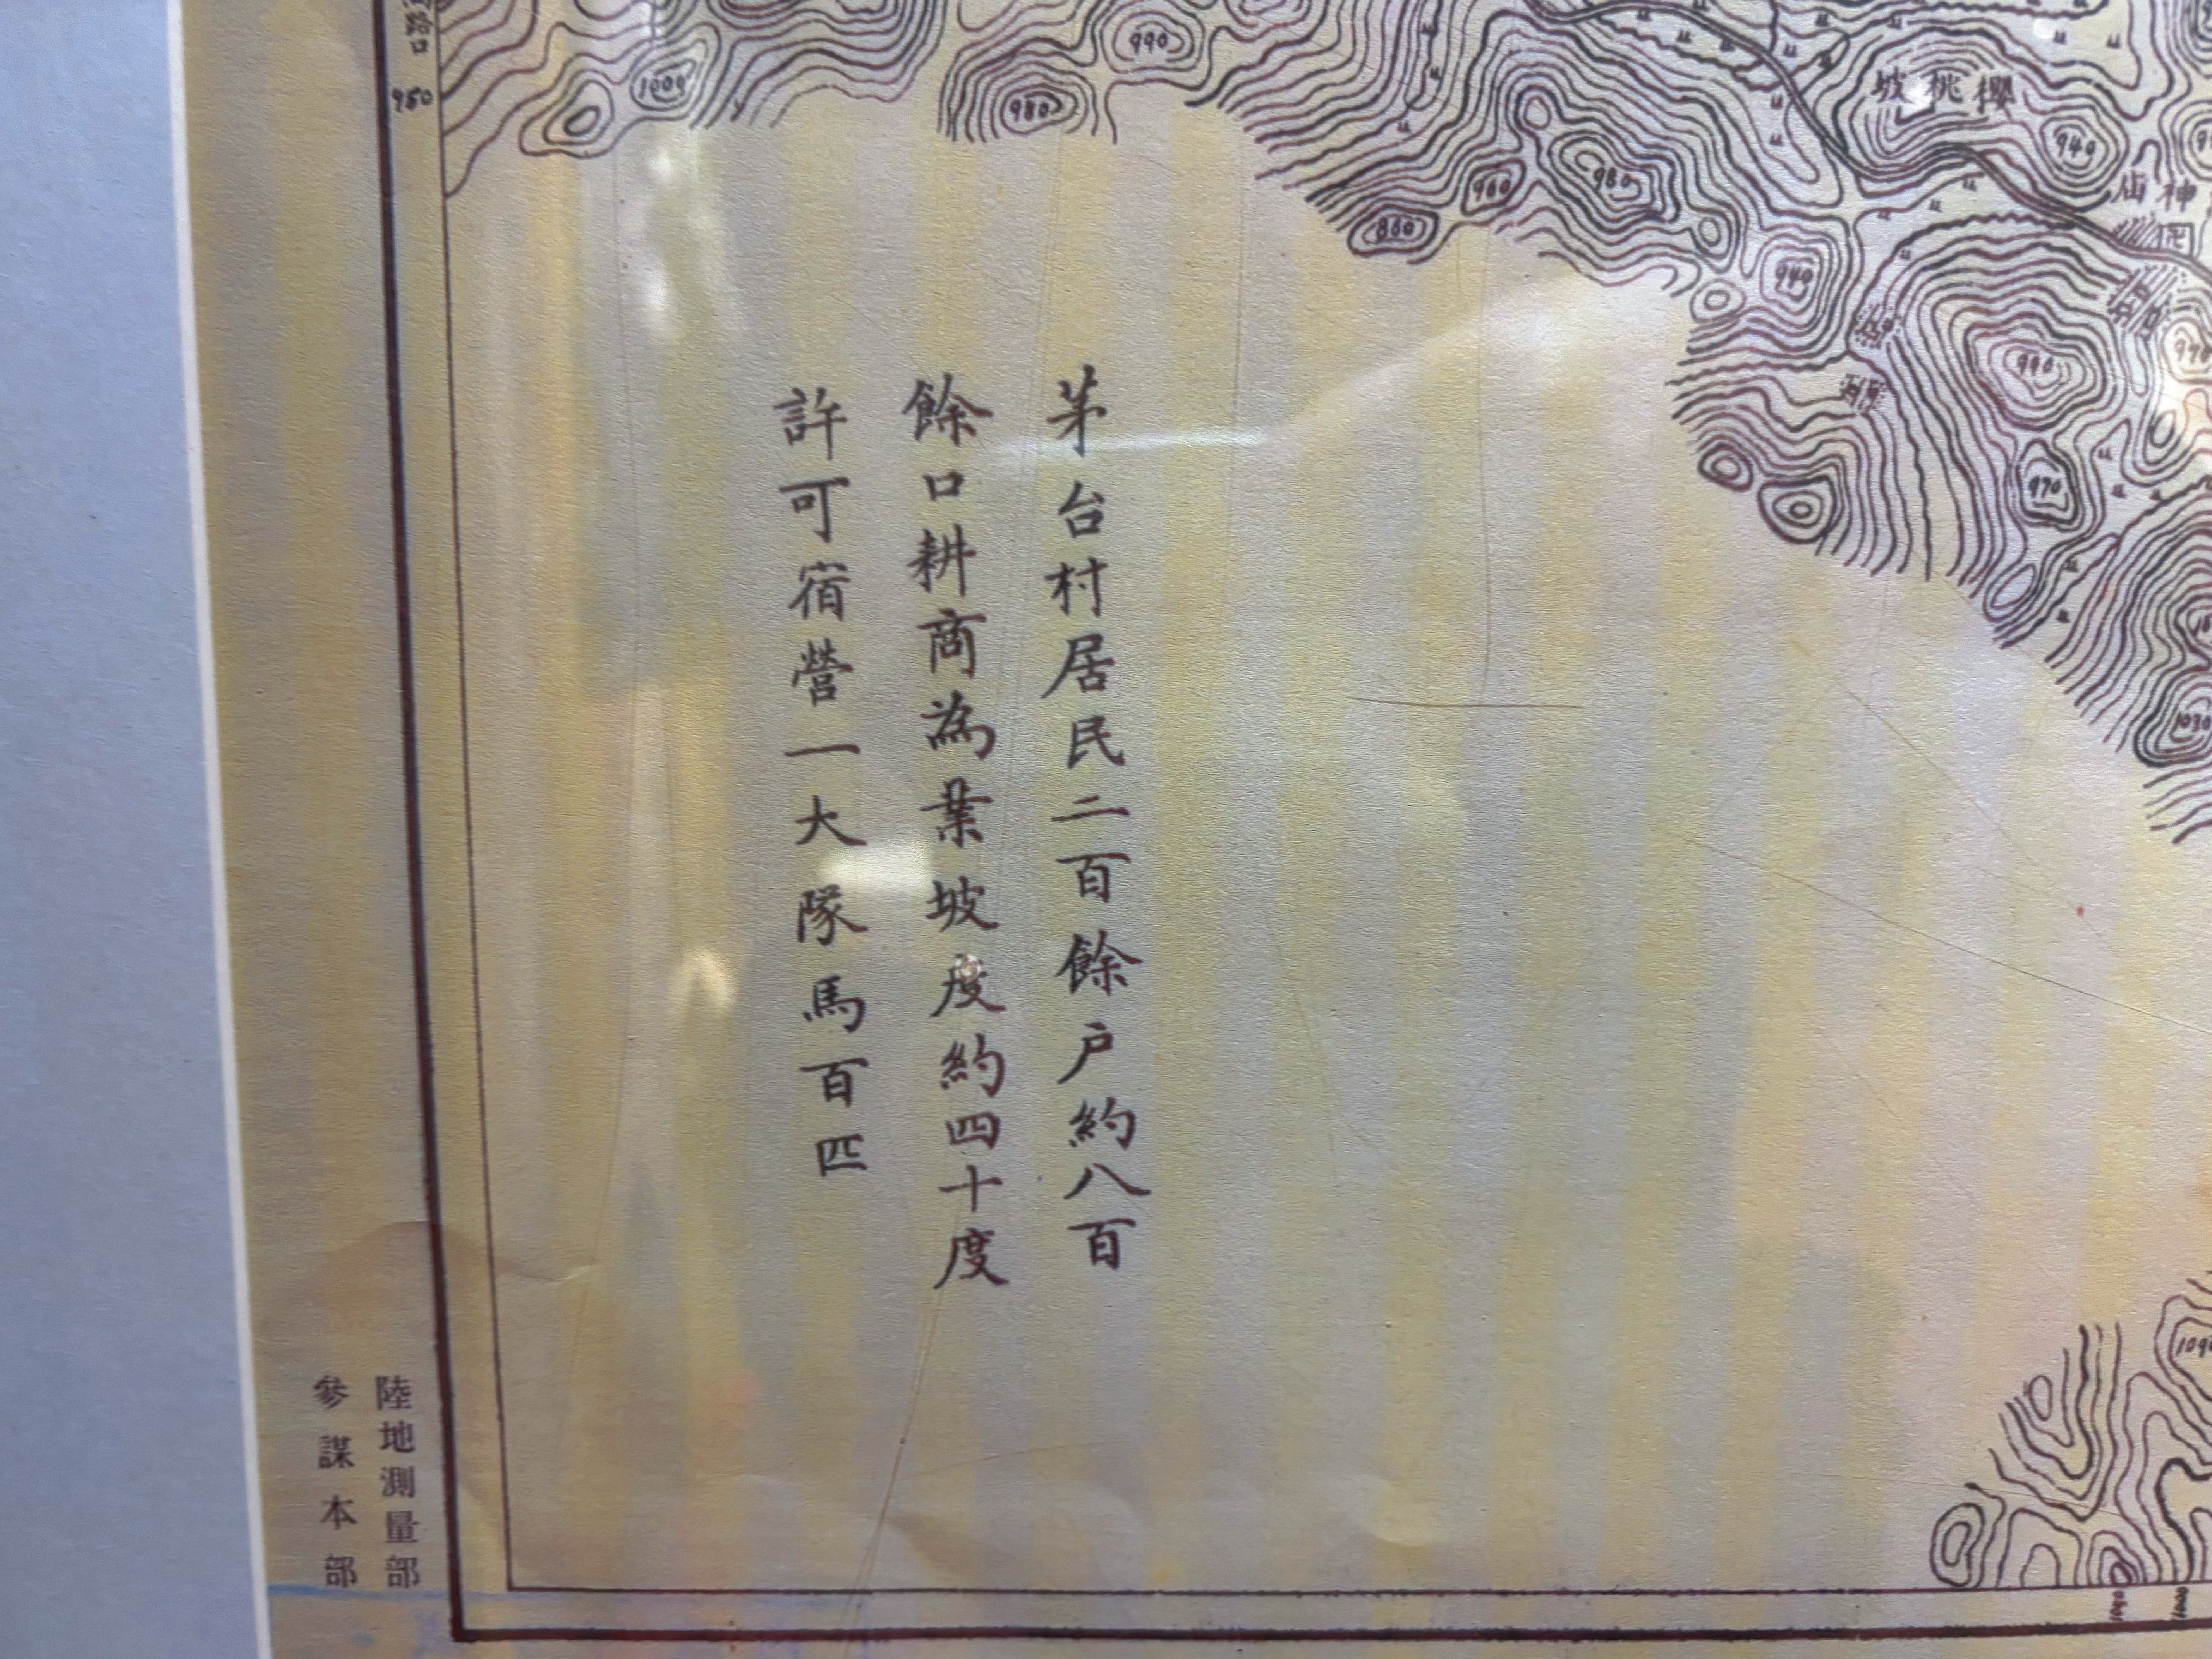 茅台村居民二百餘户約八百
餘口耕商為業坡度約四十度
許可宿營一大隊馬百匹
陸地測量部
參謀本部
路口
950
1000
990
980
櫻桃坡
940
960
980
860
940
神庙
990
970
970
1030
1090